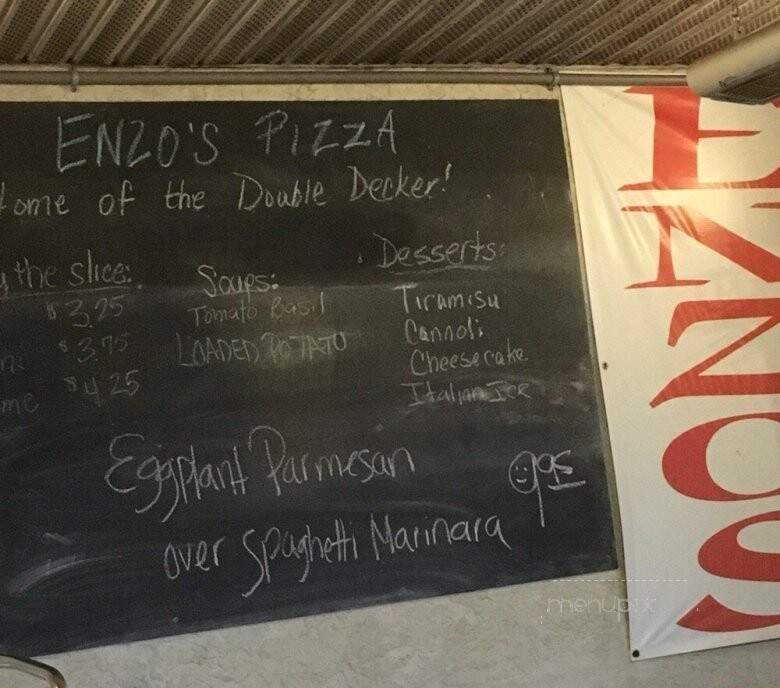 ENZO'S PIZZA
ome of the Double Decker!
the slice:
$3.25
$3.75
me $4.25
Soups:
Tomato Basil
LOADED POTATO
Desserts:
Tiramisu
Cannoli
Cheesecake
Italian Ice
Eggplant Parmesan
over Spaghetti Marinara
995
ENZO'S
menupix